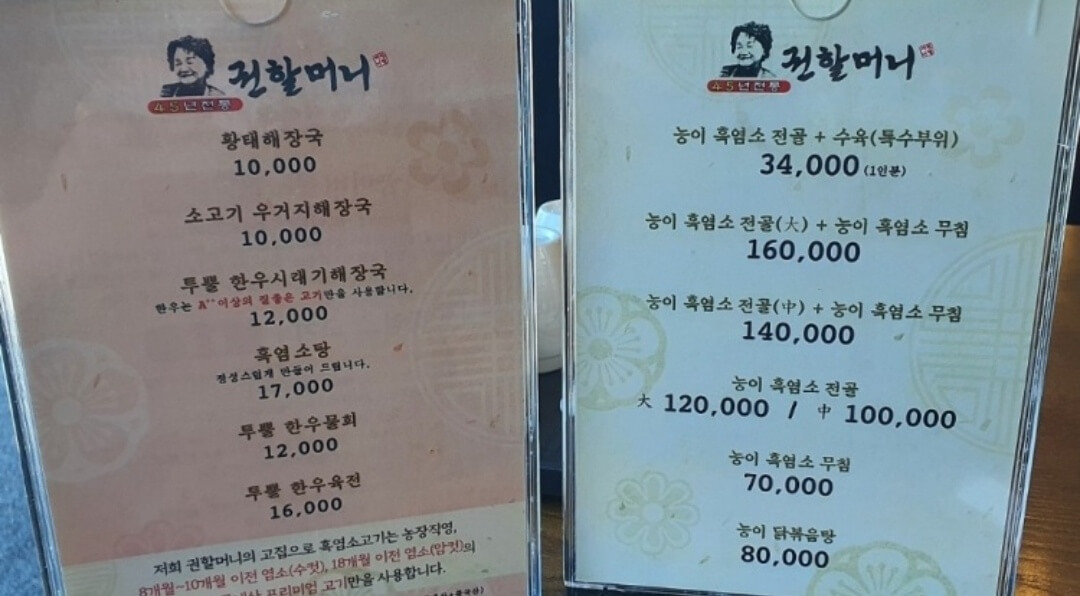 권할머니
45년전통
황태해장국
10,000
소고기 우거지해장국
10,000
투뿔 한우시래기해장국
한우는 A⁺⁺이상의 질좋은 고기만을 사용합니다.
12,000
흑염소탕
정성스럽게 만들어 드립니다.
17,000
투뿔 한우물회
12,000
투뿔 한우육전
16,000
저희 권할머니의 고집으로 흑염소고기는 농장직영,
8개월~10개월 이전 염소(수컷), 18개월 이전 염소(암컷)의
프리미엄 고기만을 사용합니다.
권할머니
45년전통
능이 흑염소 전골 + 수육(특수부위)
34,000 (1인분)
능이 흑염소 전골(大) + 능이 흑염소 무침
160,000
능이 흑염소 전골(中) + 능이 흑염소 무침
140,000
능이 흑염소 전골
大 120,000 / 中 100,000
능이 흑염소 무침
70,000
능이 닭볶음탕
80,000